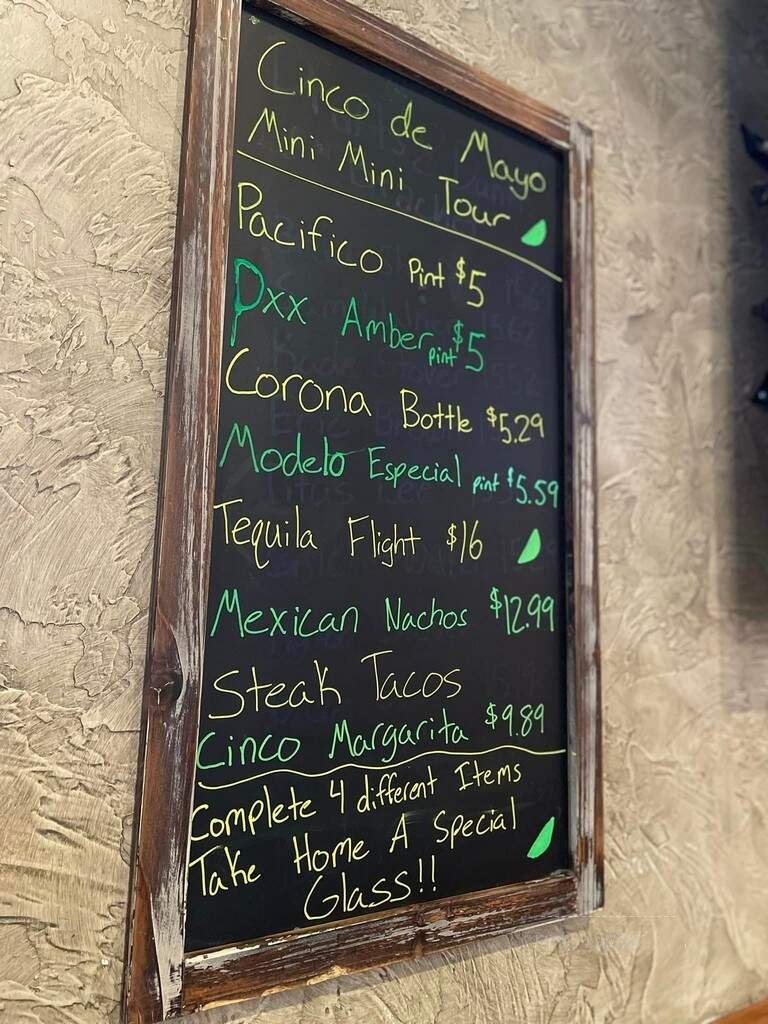 Cinco de Mayo
Mini Mini Tour
Pacifico Pint $5
Dxx Amber pint $5
Corona Bottle $5.29
Modelo Especial pint $5.59
Tequila Flight $16
Mexican Nachos $12.99
Steak Tacos
Cinco Margarita $9.89
Complete 4 different Items
Take Home A Special
Glass!!